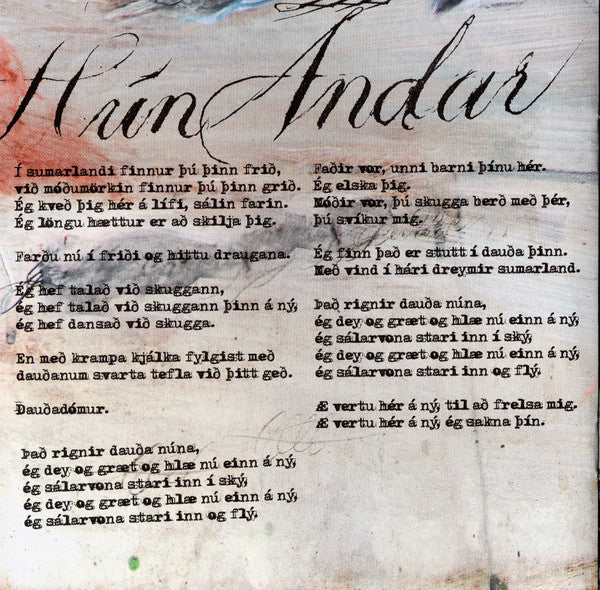 Hún Andar
Í sumarlandi finnur þú þinn frið,
við móðumörkin finnur þú þinn grið.
Ég kveð þig hér á lífi, sálin farin.
Ég löngu hættur er að skilja þig.
Farðu nú í friði og hittu draugana.
Ég hef talað við skuggann,
ég hef talað við skuggann þinn á ný,
ég hef dansað við skugga.
En með krampa kjálka fylgist með
dauðanum svarta tefla við þitt geð.
Dauðadómur.
Það rignir dauða núna,
ég dey og græt og hlæ nú einn á ný,
ég sálarvona stari inn í ský,
ég dey og græt og hlæ nú einn á ný,
ég sálarvona stari inn og flý,
Faðir vor, unni barni þínu hér.
Ég elska þig.
Móðir vor, þú skugga berð með þér,
þú svíkur mig.
Ég finn það er stutt í dauða þinn.
Með vind í hári dreymir sumarland.
Það rignir dauða núna,
ég dey og græt og hlæ nú einn á ný,
ég sálarvona stari inn í ský,
ég dey og græt og hlæ nú einn á ný,
ég sálarvona stari inn og flý,
Æ vertu hér á ný, til að frelsa mig.
Æ vertu hér á ný, ég sakna þín.